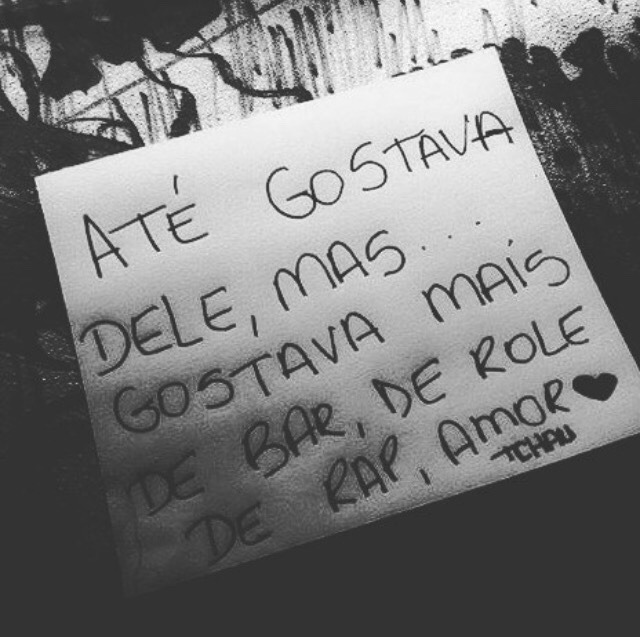 ATÉ GOSTAVA
DELE, MAS...
GOSTAVA MAÍS
DE BAR, DE ROLE
DE RAP, AMOR ♥
TCHAU